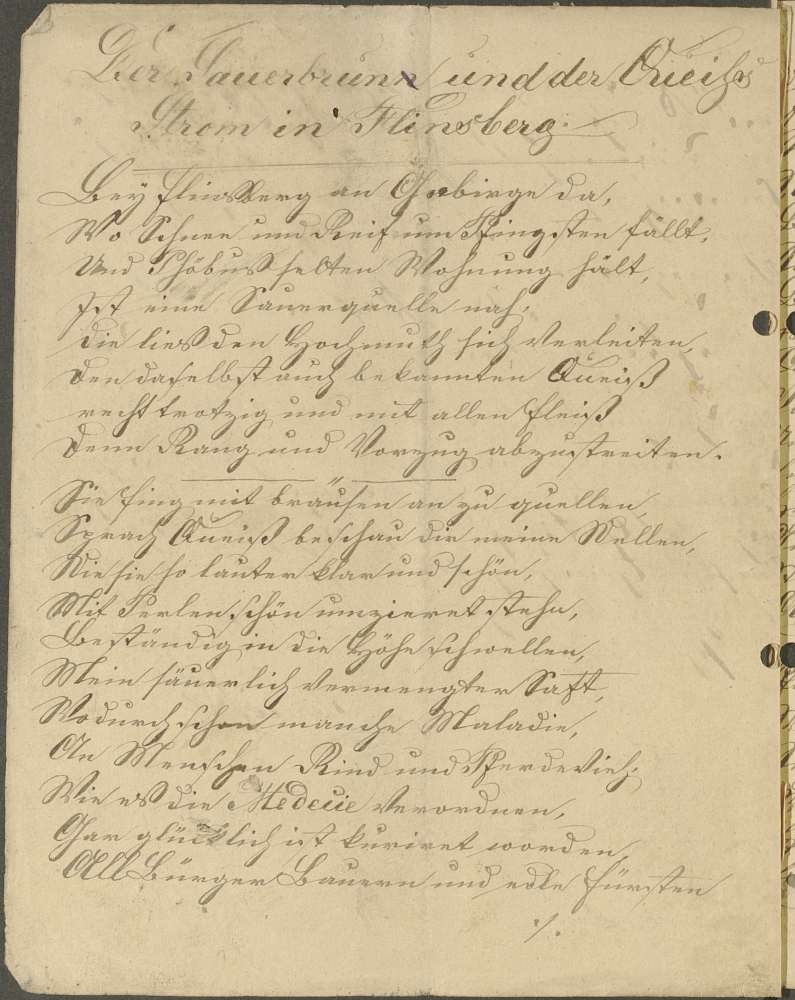 Der Sauerbrunn und der Queiß
Strom in Flinsberg.
Bey Flinsberg an Gebirge da,
Wo Schnee und Reif um Pfingsten fällt,
Und Phöbus selten Wohnung hält,
Ist eine Sauerquelle nah;
die ließ den Hochmuth sich verleiten,
den daselbst auch bekannten Queiß
recht trotzig und mit allen Fleiß
denn Rang und Vorzug abzustreiten.
Sie fing mit brausen an zu quellen,
Sprach Queiß beschau dir meine Wellen,
Wie sie so lauter klar und schön,
Mit Perlen schön umzieret stehn,
Beständig in die Höhe schwellen,
Mein säuerlich vermengter Saft,
Wodurch schon manche Maladie,
An Menschen Rind und Pferdevieh;
Wie es die Medecie verordnen,
Gar glücklich ist kuriret worden,
All Bürger Bauern und edle Fürsten
./.